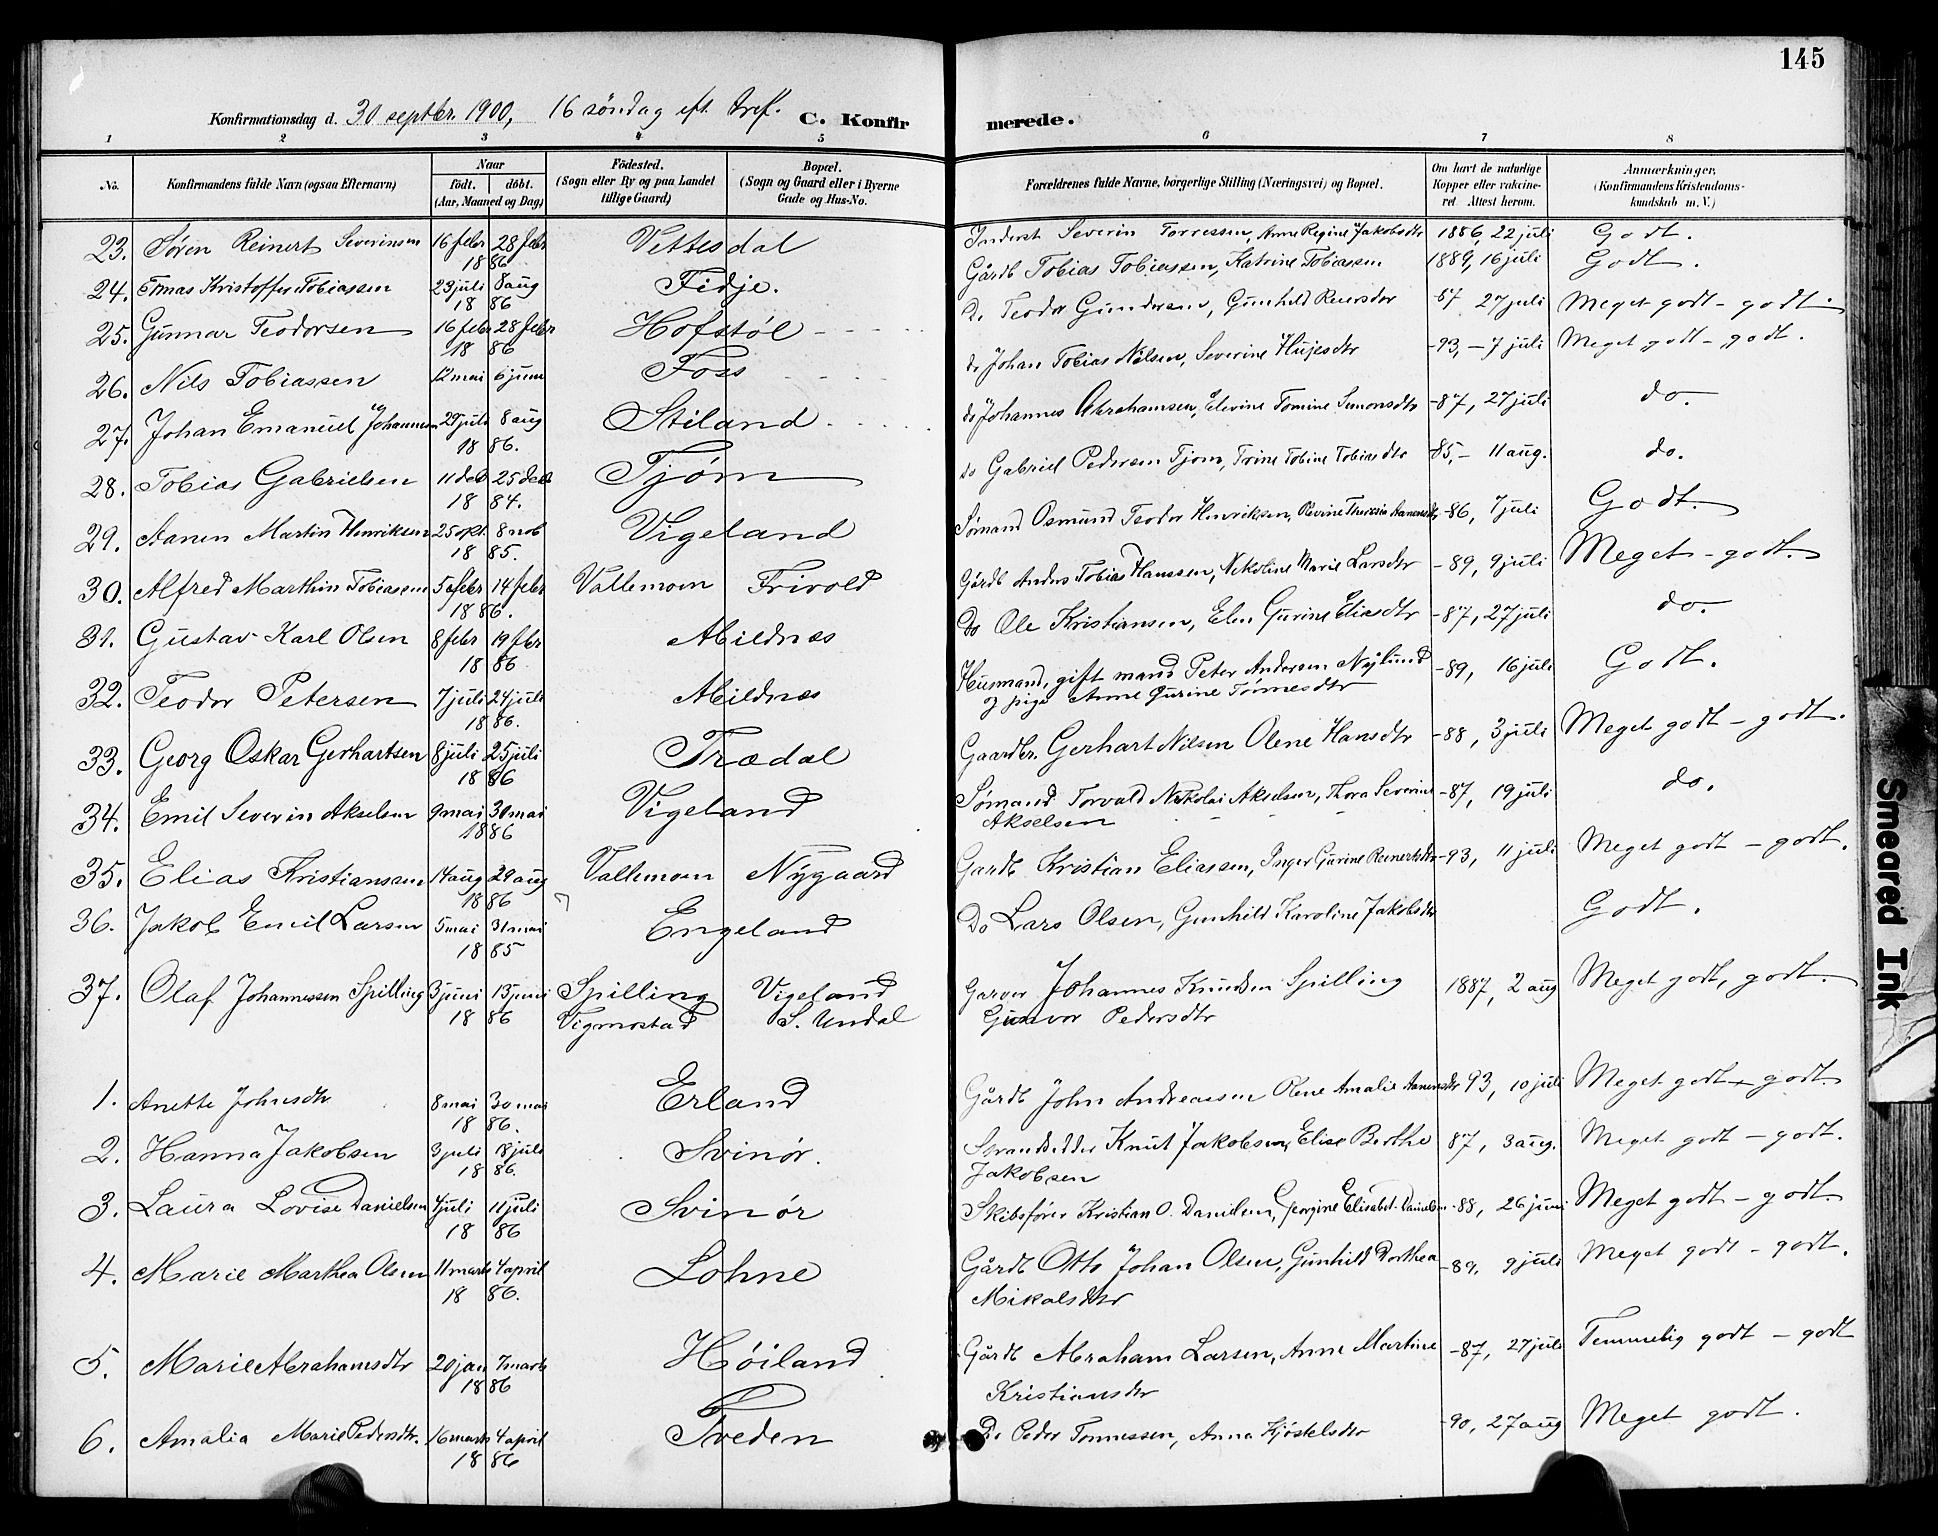 145
Konfirmationsdag d. 30 septbr. 1900, 16 söndag eft. tref. C. Konfirmerede.
1 2 3 4 5 6 7 8
No. Konfirmandens fulde Navn (ogsaa Efternavn) Naar födt. döbt. (Aar, Maaned og Dag) Födested. (Sogn eller By og paa Landet tillige Gaard) Bopæl. (Sogn og Gaard eller i Byerne Gade og Hus-No. Forældrenes fulde Navne, borgerlige Stilling (Næringsvei) og Bopæl. Om havt de naturlige Kopper eller vakcineret. Attest herom. Anmærkninger. (Konfirmandens Kristendomskundskab m. V.)
23. Søren Reinert Severinsen 16 febr 28 febr 1886 Vettesdal Inderst Severin Torressen, Anne Regine Jakobsdtr 1886, 22 juli Godt.
24. Tomas Kristoffer Tobiassen 23 juli 8 aug 1886 Fidje. Gårdb Tobias Tobiassen, Katrine Tobiassen 1889, 16 juli Godt.
25. Gunnar Teodorsen 16 febr 28 febr 1886 Hofstøl Do Teodor Gundersen, Gunhild Reiersdtr -87 27 juli Meget godt - godt.
26. Nils Tobiassen 12 mai 6 juni Foss do Johan Tobias Nilsen, Severine -93, - 7 juli Meget godt - godt.
27. Johan Emanuel Johannesen 29 juli 8 aug 1886. Stiland do Johannes Abrahamsen, Elevine Tomine Simonsdtr -87, 27 juli do.
28. Tobias Gabrielsen 11 deb 25 deb 1884. Tjøm do Gabriel Pedersen Tjom, Trine Tobine Tobiasdtr 85, - 11 aug. do.
29. Aanen Martin Henriksen 25 okt. 8 nob 1885. Vigeland Sømand Osmund Teodor Henriksen, Revine Theresia Aanensdtr -86, 7 juli Godt.
30. Alfred Marthin Tobiassen 5 febr 14 febr 1886. Vallemoen Frivold Gårdb Anders Tobias Hanssen, Nikoline Marie Larsdtr -89, 9 juli Meget - godt.
31. Gustav Karl Olsen 8 febr 19 febr 1886 Mildnæs Do Ole Kristiansen, Elen Gurine Eliasdtr -87, 27 juli do.
32. Teodor Petersen 7 juli 24 juli 1886. Mildnæs Husmand, gift mand Peter Andersen Nylund og pige Anne Gurine Tönnesdtr -89, 16 juli Godt.
33. Georg Oskar Gerhartsen 8 juli 25 juli 1886 Trædal Gaardbr. Gerhart Nilsen Olene Hansdtr -88, 3 juli Meget godt - godt.
34. Emil Severin Akselsen 9 mai 30 mai 1886 Vigeland Sømand Torvald Nikolai Akselsen, Thora Severine Akselsen -87, 19 juli do.
35. Elias Kristiansen 14 aug 29 aug 1886 Vallemoen Nygaard Gardb Kristian Eliassen, Inger Gurine Reinertsdtr -93, 11 juli Meget godt - godt.
36. Jakob Emil Larsen 5 mai 31 mai 1885 Engeland Do Lars Olsen, Gunhild Karoline Jakobsdtr Godt.
37. Olaf Johannessen Spilling 3 juni 13 juni 1886 Spilling Vigmostad Vigeland S. Undal Garver Johannes Knudsen Spilling Gunvor Pedersdtr 1887, 2 aug Meget godt, godt.
1. Anette Johnsdtr 8 mai 30 mai 1886. Erland Gårdb John Andreassen Olene Amalie Aanensdtr 93, 10 juli Meget godt - godt.
2. Hanna Jakobsen 3 juli 18 juli 1886. Svinør. Strandsidder Knut Jakobsen, Elise Berthe Jakobsen 87, 3 aug. Meget godt - godt.
3. Laura Lovise Danielsen 4 juli 11 juli 1886 Svinør Skibsfører Kristian O. Danielsen, Georgine Elisabet Danielsen -88, 26 juni Meget godt - godt
4. Marie Marthea Olsen 11 marts 4 april 1886. Lohne Gårdb Otto Johan Olsen, Gunhild Dorthea Mikalsdtr -89, 9 juli Meget godt - godt.
5. Marie Abrahamsdtr 20 jan 7 marts 1886 Høiland Gårdb Abraham Larsen, Anne Martine Kristiansdtr -87, 27 juli Temmelig godt - godt
6. Amalia Marie Pedersdtr. 16 marts 4 april 1886 Tveden Do Peder Tønnessen, Anna Kjøstelsdtr -90, 27 aug Meget godt.
Smeared Ink